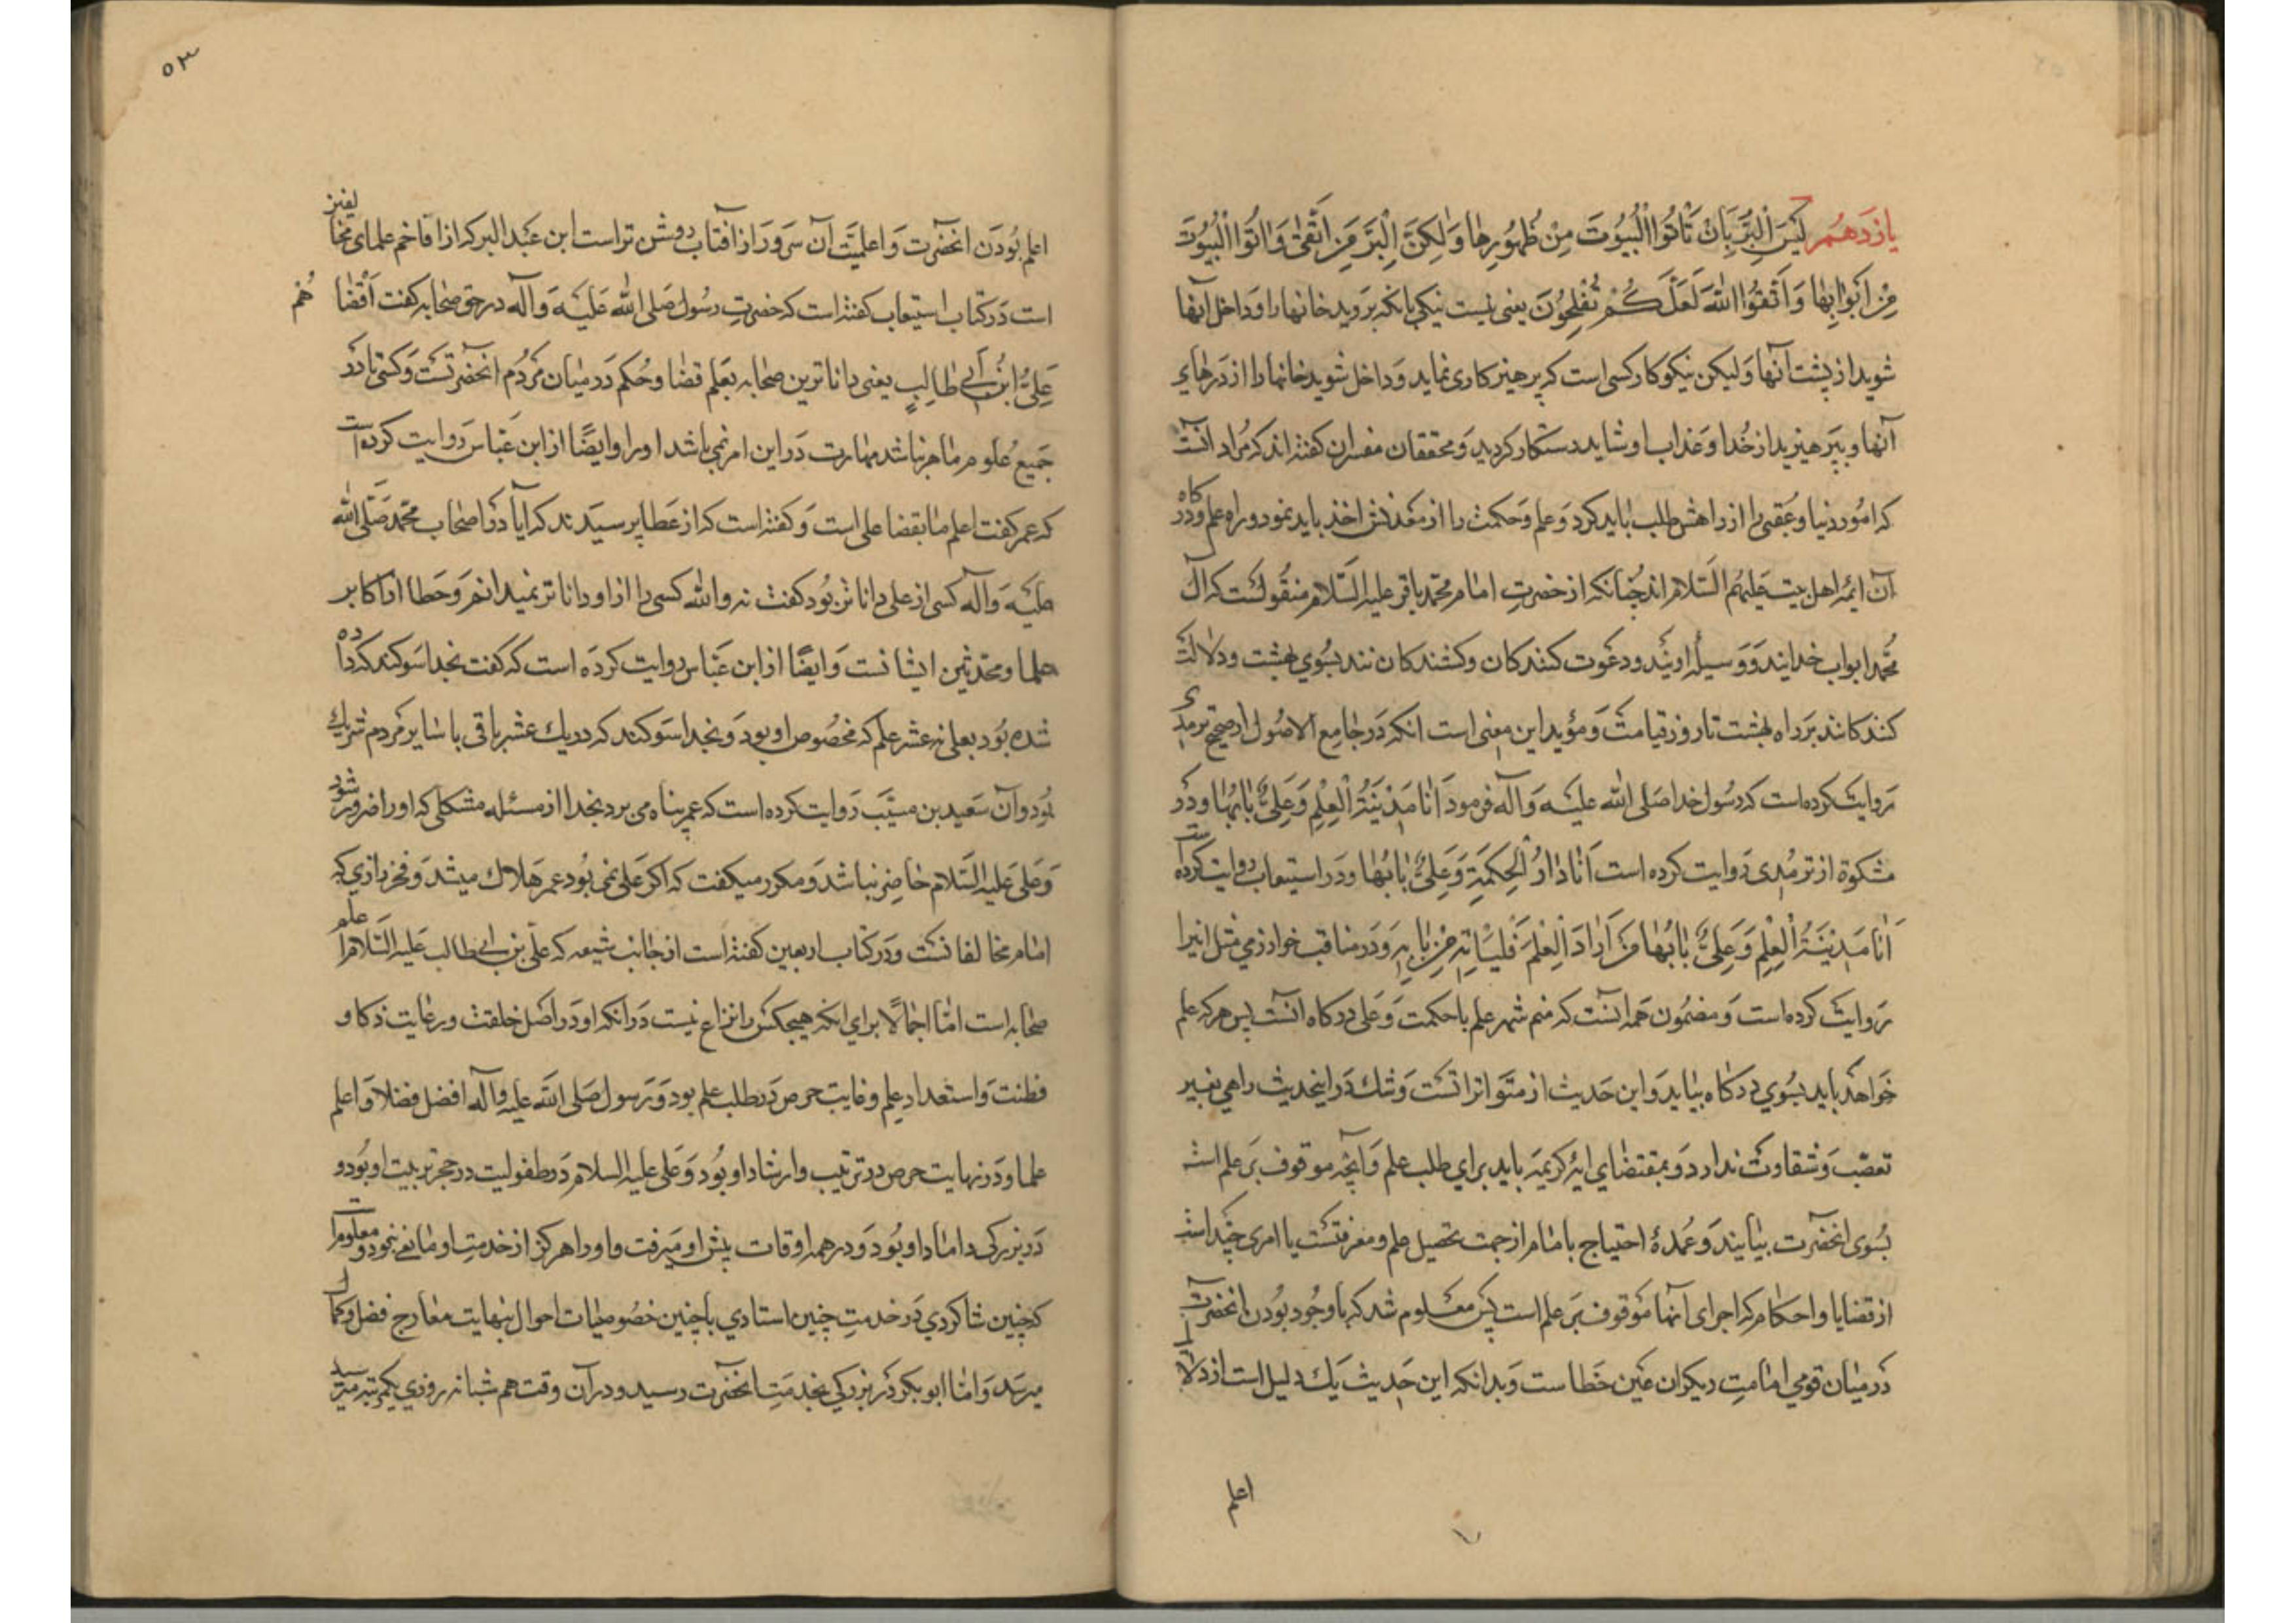 یازدهم لَیْسَ الْبِرُّ بِاَنْ تَاْتُوا الْبُیُوتَ مِنْ ظُهُورِهٰا وَلٰکِنَّ الْبِرَّ مَنِ اتَّقٰی وَاْتُوا الْبُیُوتَ
مِنْ اَبْوٰابِهٰا وَاتَّقُوا اللّٰهَ لَعَلَّکُمْ تُفْلِحُونَ یعنی نیست نیکی بانکه بروید خانها را و داخل آنها
شوید از پشت آنها ولیکن نیکوکار کسی است که پرهیزکاری نماید و داخل شوید خانها را از درهای
آنها و بپرهیزید از خدا و عذاب او شاید رستکار کردید و محققان مفسران کفته‌اند که مراد آنست
که امور دنیا و عقبی را از راهش طلب باید کرد و علم و حکمت را از معدنش اخذ باید نمود و راه علم و درکاه
آن ایمه اهل بیت علیهم السلام اند چنانکه از حضرت امام محمد باقر علیه السلام منقولست که آل
محمد ابواب خدایند و وسیله اویند و دعوت کنندکان و کشندکان‌ نند بسوی بهشت و دلالت
کنندکانند بر راه بهشت تا روز قیامت و مؤید این معنی است انکه در جامع الاصول از صحیح ترمدی
روایت کرده است که رسول خدا صلی الله علیه و آله فرمود اَنَا مَدِیْنَةُ الْعِلْمِ وَعَلِیٌّ بٰابُهٰا و در
مشکوة از ترمدی روایت کرده است اَنَا دٰارُ الْحِکْمَةِ وَعَلِیٌّ بٰابُهٰا و در استیعاب روایت کرده است
اَنَا مَدِیْنَةُ الْعِلْمِ وَعَلِیٌّ بٰابُهٰا فَمَنْ اَرٰادَ الْعِلْمَ فَلْیَاْتِهِ مِنْ بٰابِهِ و در مناقب خوارزمی مثل اینرا
روایت کرده است و مضمون همه آنست که منم شهر علم با حکمت و علی درکاه آنست پس هر که علم
خواهد باید بسوی درکاه بیاید و این حدیث از متواتراتست و شک در اینحدیث راهی بغیر
تعصب و شقاوت ندارد و بمقتضای ایه کریمه باید برای طلب علم و آنچه موقوف بر علم است
بسوی انحضرت بیایند و عمدهٔ احتیاج بامام از جهت تحصیل علم و معرفتست یا امری چند است
از قضایا و احکام که اجرای آنها موقوف بر علم است پس معلوم شد که با وجود بودن انحضرت
در میان قومی امامت دیکران عین خطاست و بدانکه این حدیث یک دلیل است از دلایل
اعلم
۵۳
اعلم بودن انحضرت و اعلمیت آن سرور از آفتاب روشن تر است ابن عبد البر که از افاخم علمای مخالفین
است در کتاب استیعاب کفته است که حضرت رسول صلی الله علیه و آله در حق صحابه کفت اَقْضٰاهُم
عَلِیُّ ابْنُ اَبی طٰالِبٍ یعنی داناترین صحابه بعلم قضا و حکم در میان مردم انحضرتست و کسی تا در
جمیع علوم ماهر نباشد مهارت در این امر نمی‌باشد او را و ایضًا از ابن عباس روایت کرده است
که عمر کفت اعلم ما بقضا علی است و کفته است که از عطا پرسیدند که ایا در اصحاب محمد صلی الله
علیه و آله کسی از علی داناتر بود کفت نه والله کسی را از او داناتر نمیدانم و عطا از اکابر
علما و محدثین ایشانست و ایضًا از ابن عباس روایت کرده است که کفت بخدا سوکند که داده
شده بود بعلی نه عشر علم که مخصوص او بود و بخدا سوکند که در یک عشر باقی با سایر مردم شریک
بود و آن سعید بن مسیب روایت کرده است که عمر پناه می برد بخدا از مسئله مشکلی که او را ضرور شود
و علی علیه السلام حاضر نباشد و مکرر میکفت که اکر علی نمی بود عمر هلاک میشد و فخر رازی که
امام مخالفانست و در کتاب اربعین کفته است از جانب شیعه که علی بن ابی طالب علیه السلام اعلم
صحابه است امّا اجمالًا برای انکه هیچکس را نزاع نیست در انکه او در اصل خلقت در غایت ذکا و
فطنت و استعداد علم و غایت حرص در طلب علم بود و رسول صلی الله علیه و آله افضل فضلا و اعلم
علما و در نهایت حرص در تربیت و ارشاد او بود و علی علیه السلام در طفولیت در حجر تربیت او بود و
در بزرکی داماد او بود و در همه اوقات پیش او میرفت و او را هرکز از خدمت او مانعی نبود و معلوم است
که چنین شاکردی در خدمت چنین استادی باچنین خصوصیات احوال بنهایت معارج فضل و کمال
میرسد و امّا ابو بکر در بزرکی بخدمت انحضرت رسید و در آن وقت هم شبانه روزی یکمرتبه میرسید